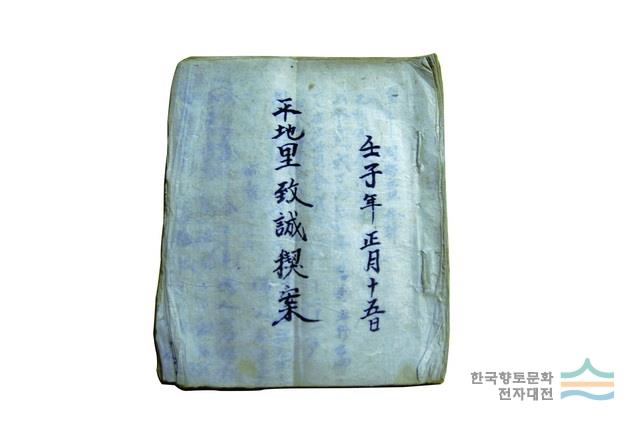 壬子年正月十五日
平地里致誠揳案
한국향토문화
전자대전